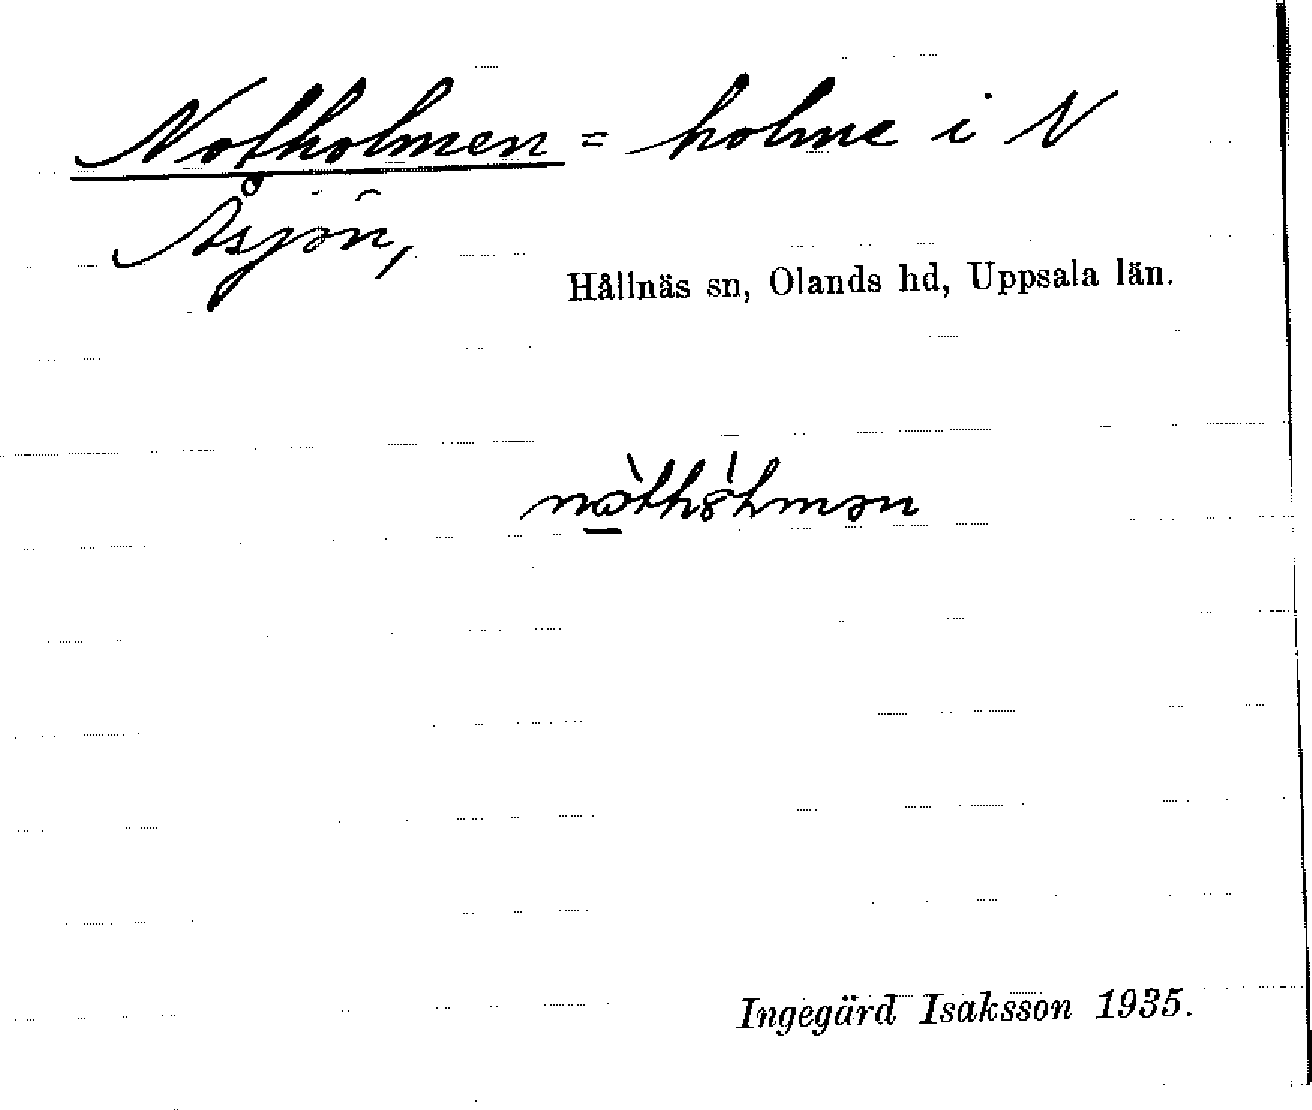 Notholmen = holme i N
Åsjön,
Hållnäs sn, Olands hd, Uppsala län.
Ingegärd Isaksson 1935.